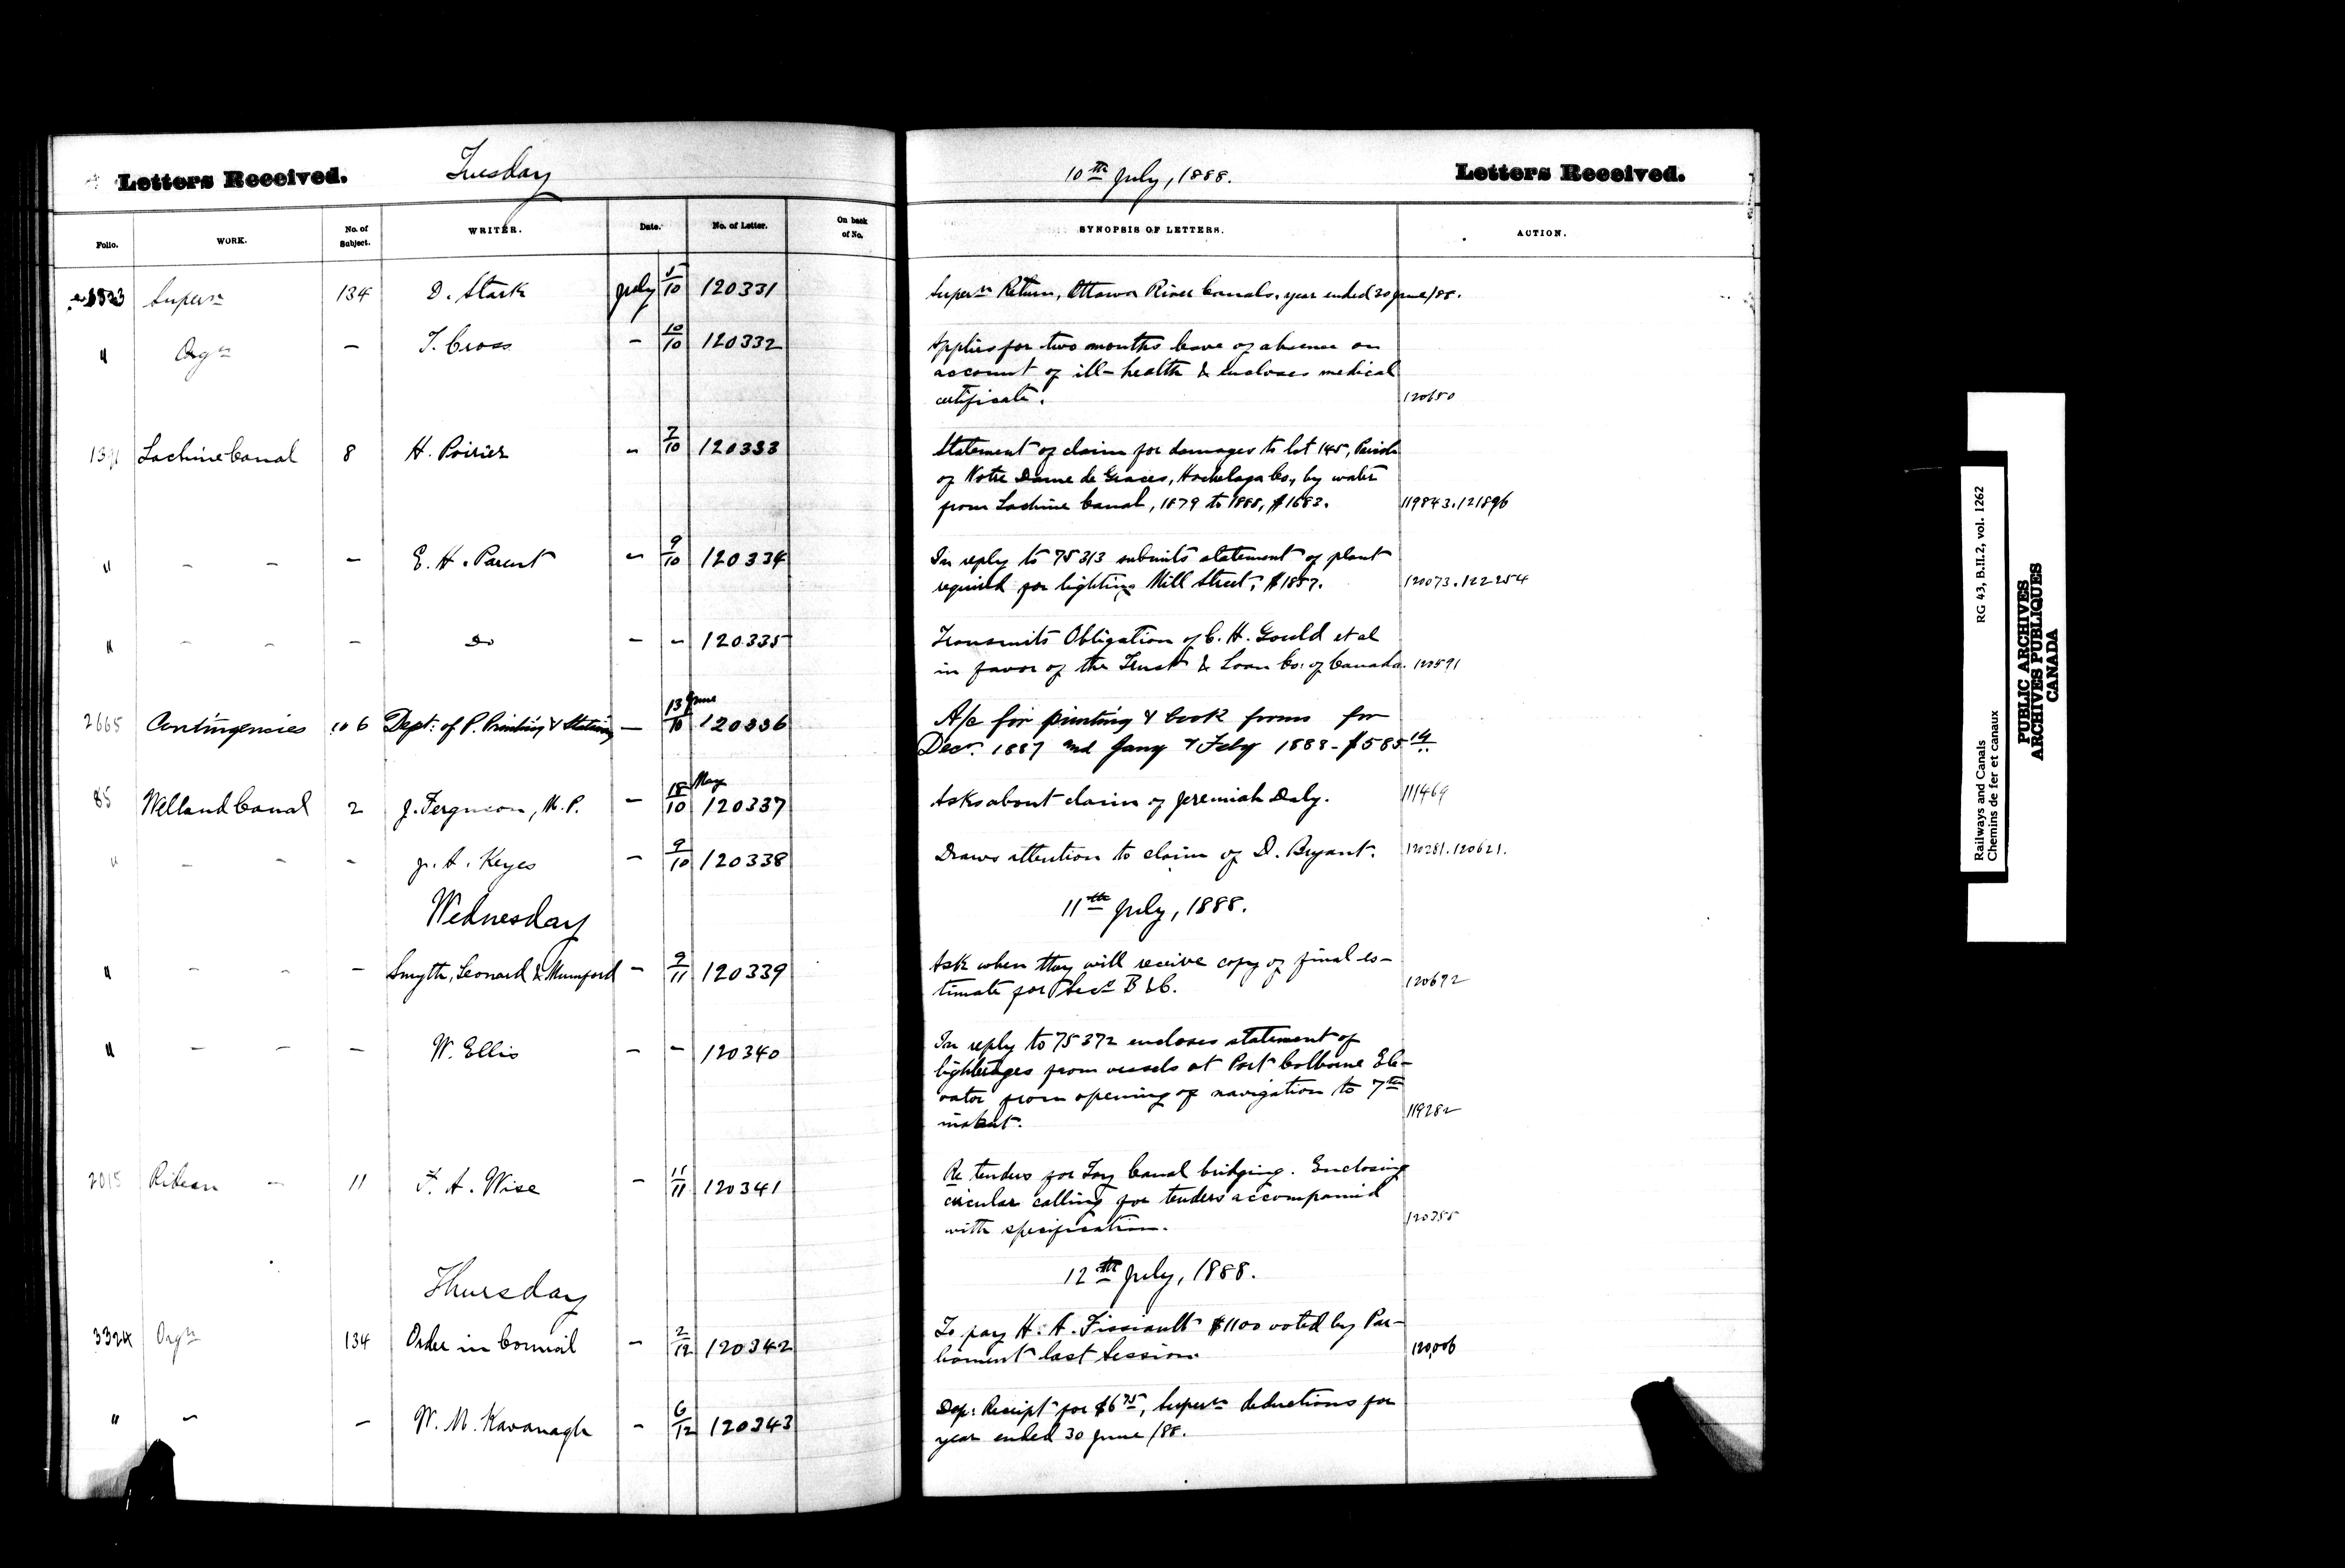 Letters Received. Tuesday 10th July, 1888. Letters Received.
Folio. WORK. No. of Subject. WRITER. Date. No. of Letter. On back of No. SYNOPSIS OF LETTERS. ACTION.
Supern 134 D. Stark July 5/10 120331 Supern Return, Ottawa River Canals, year ended 30 June/88.
" Orgn - T. Cross - 10/10 120332 Applies for two months leave of absence on
account of ill-health & encloses medical
certificate. 120650
Lachine Canal 8 H. Poirier - 7/10 120333 Statement of claim for damages to lot 145, Parish
of Notre Dame de Graces, Hochelaga Co., by water
from Lachine Canal, 1879 to 1888, $1683. 119843.121896
" - - - E. H. Parent - 9/10 120334 In reply to 75313 submits statement of plant
required for lighting Mill Street, $1857. 120073.122254
" - - - Do - - 120335 Transmits Obligation of C. H. Gould et al
in favor of the Trust & Loan Co: of Canada. 120591
2665 Contingencies 106 Dept: of P. Printing & Stationy - 13 June/10 120336 A/c for printing & book forms for
Decr. 1887 and Jany & Feby 1888 - $585 14/..
85 Welland Canal 2 J. Ferguson, M.P. - 18 May/10 120337 Asks about claim of Jeremiah Daly. 111469
" - - - J. A. Keyes - 9/10 120338 Draws attention to claim of D. Bryant. 120281.120621.
Wednesday 11th July, 1888.
" - - - Smyth, Leonard & Mumford - 9/11 120339 Ask when they will receive copy of final es-
timate for Secs B & C. 120692
" - - - W. Ellis - - 120340 In reply to 75372 encloses statement of
lighterages from vessels at Port Colborne Ele-
vator from opening of navigation to 7th
instant. 119282
2015 Rideau - 11 F. A. Wise - 11/11 120341 Re tenders for Tay Canal bridging. Enclosing
circular calling for tenders accompanied
with specification. 120355
Thursday 12th July, 1888.
3324 Orgn 134 Order in Council - 2/12 120342 To pay H. A. Fissiault $1100 voted by Par-
liament last Session. 120,006
" - - W. M. Kavanagh - 6/12 120343 Dep: Receipt for $6 75, Supern deductions for
year ended 30 June /88.
Railways and Canals RG 43, B.II.2, vol. 1262
Chemins de fer et canaux
PUBLIC ARCHIVES
ARCHIVES PUBLIQUES
CANADA